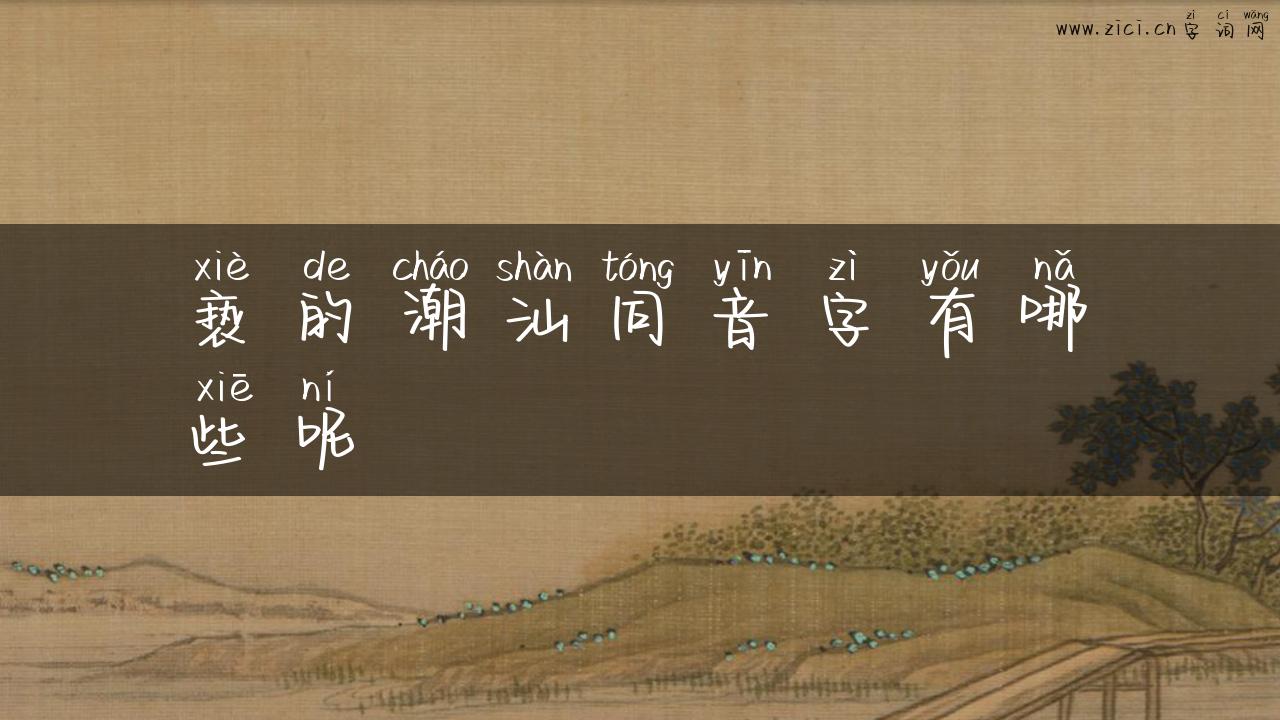 zì cí wǎng
www.zici.cn 字词网
xiè de cháo shàn tóng yīn zì yǒu nǎ
亵的潮汕同音字有哪
xiē ní
些呢